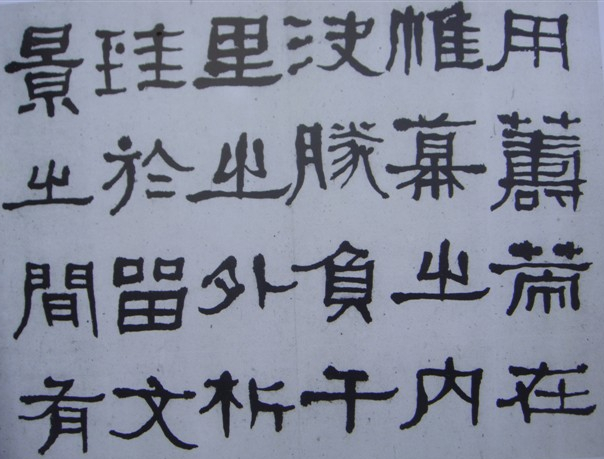 用籌策在
帷幕之內
決勝負千
里之外析
珪於留文
景之間有